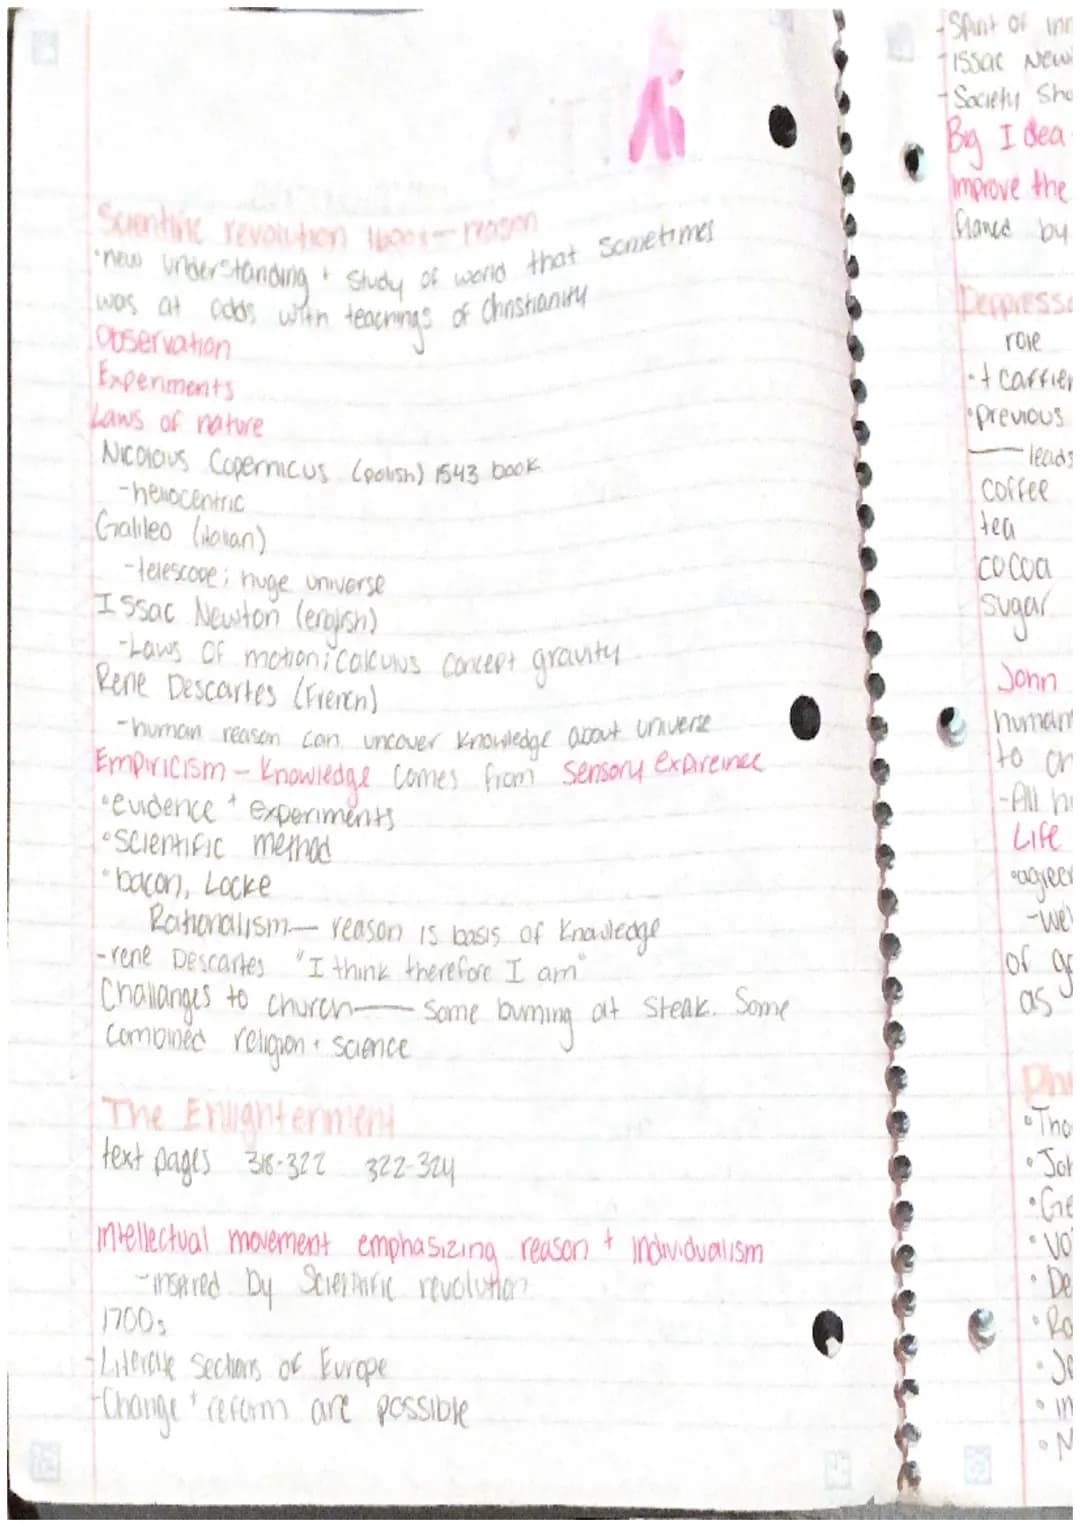 Scientific revolution 1600s - reason
•new understanding + study of world that sometimes
was at odds with teachings of Christianity
Observation
Experiments
Laws of nature
Nicolous Copernicus (polish) 1543 book
-heliocentric
Galileo (italian)
-telescope; huge universe
Issac Newton (english)
-Laws of motion; calculus concept gravity
Rene Descartes (French)
-human reason can uncover knowledge about universe
Empiricism - knowledge comes from sensory expireince
•evidence + experiments
•scientific method
•bacon, Locke
Rationalism - reason is basis of knowledge
-rene Descartes "I think therefore I am"
Challanges to church - some burning at steak. Some
combined religion + science
The Enlightenment
text pages 318-322 322-324
Intellectual movement emphasizing reason + individualism
-inspired by Scientific revolution
1700s
-Literate sections of Europe
-Change + reform are possible
-Spirit of
-Issac
-Society
Big Idea
improve the
by
role
•+
•previous
leads
coffee
tea
cocoa
sugar
John
to
-All
Life
of
as